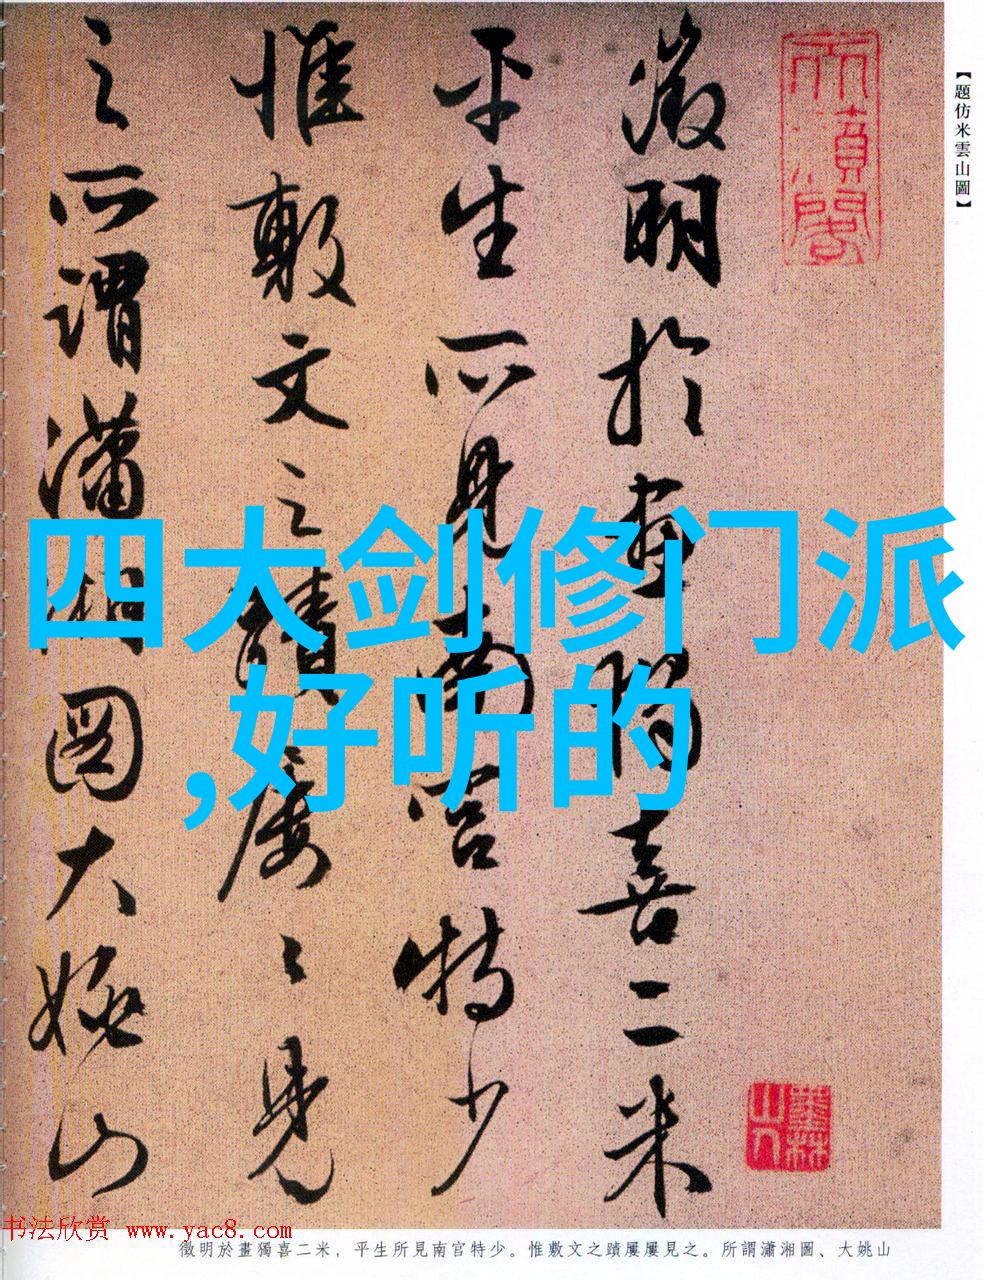 【題仿米雲山圖】
徵明於畫獨喜二米
平生所見南宮特少
惟敷文之蹟屢〻見
之所謂瀟湘圖大姚山
四大剑修门派
,好听的
书法欣赏 www.yac8.com
徵明於畫獨喜二米，平生所見南官特少。惟敷文之蹟屢屢見之。所謂瀟湘圖、大姚山